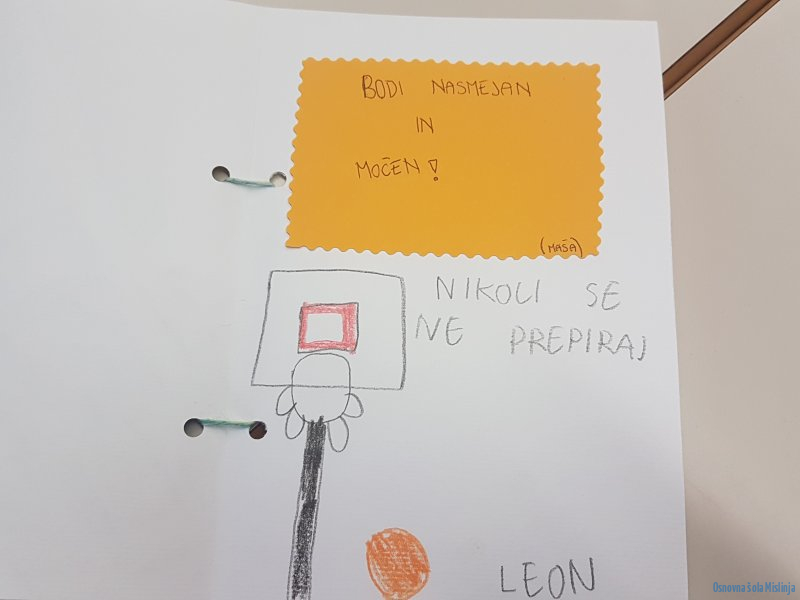 BODI NASMEJAN
IN
MOČEN!
(MAŠA)
NIKOLI SE
NE PREPIRAJ
LEON
Osnovna šola Mislinja